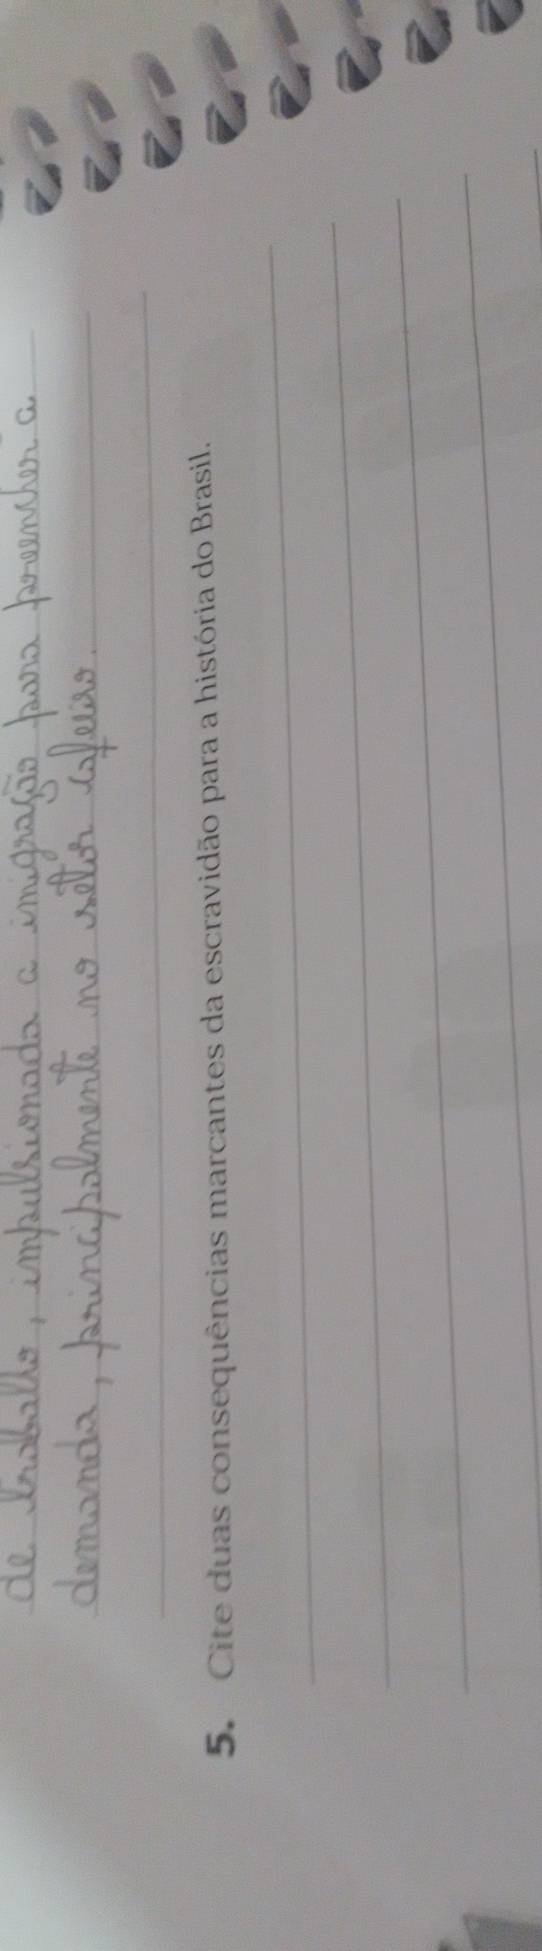 de trabalho, impulsionada a imigração para preencher a
demanda, principalmente no setor cafeeiro.
5. Cite duas consequências marcantes da escravidão para a história do Brasil.